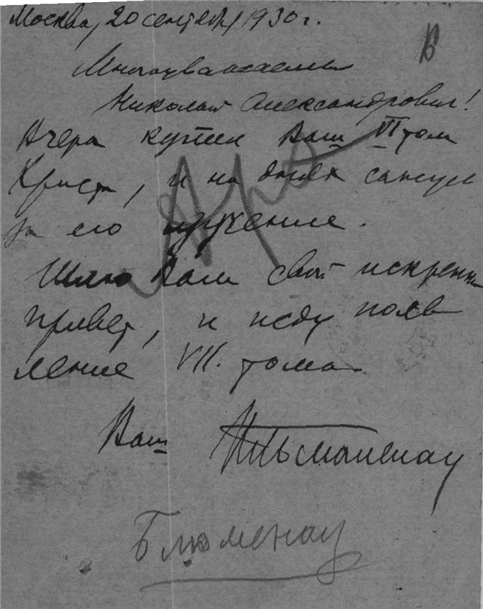 Москва, 20 сентября, 1930 г.
Многоуважаемый
Николай Александрович!
Вчера купил Ваш VI том
Христа, и на днях сажусь
за его изучение.
Шлю Вам свой искренний
привет, и жду появ
ления VII. тома.
Ваш
Блюменау